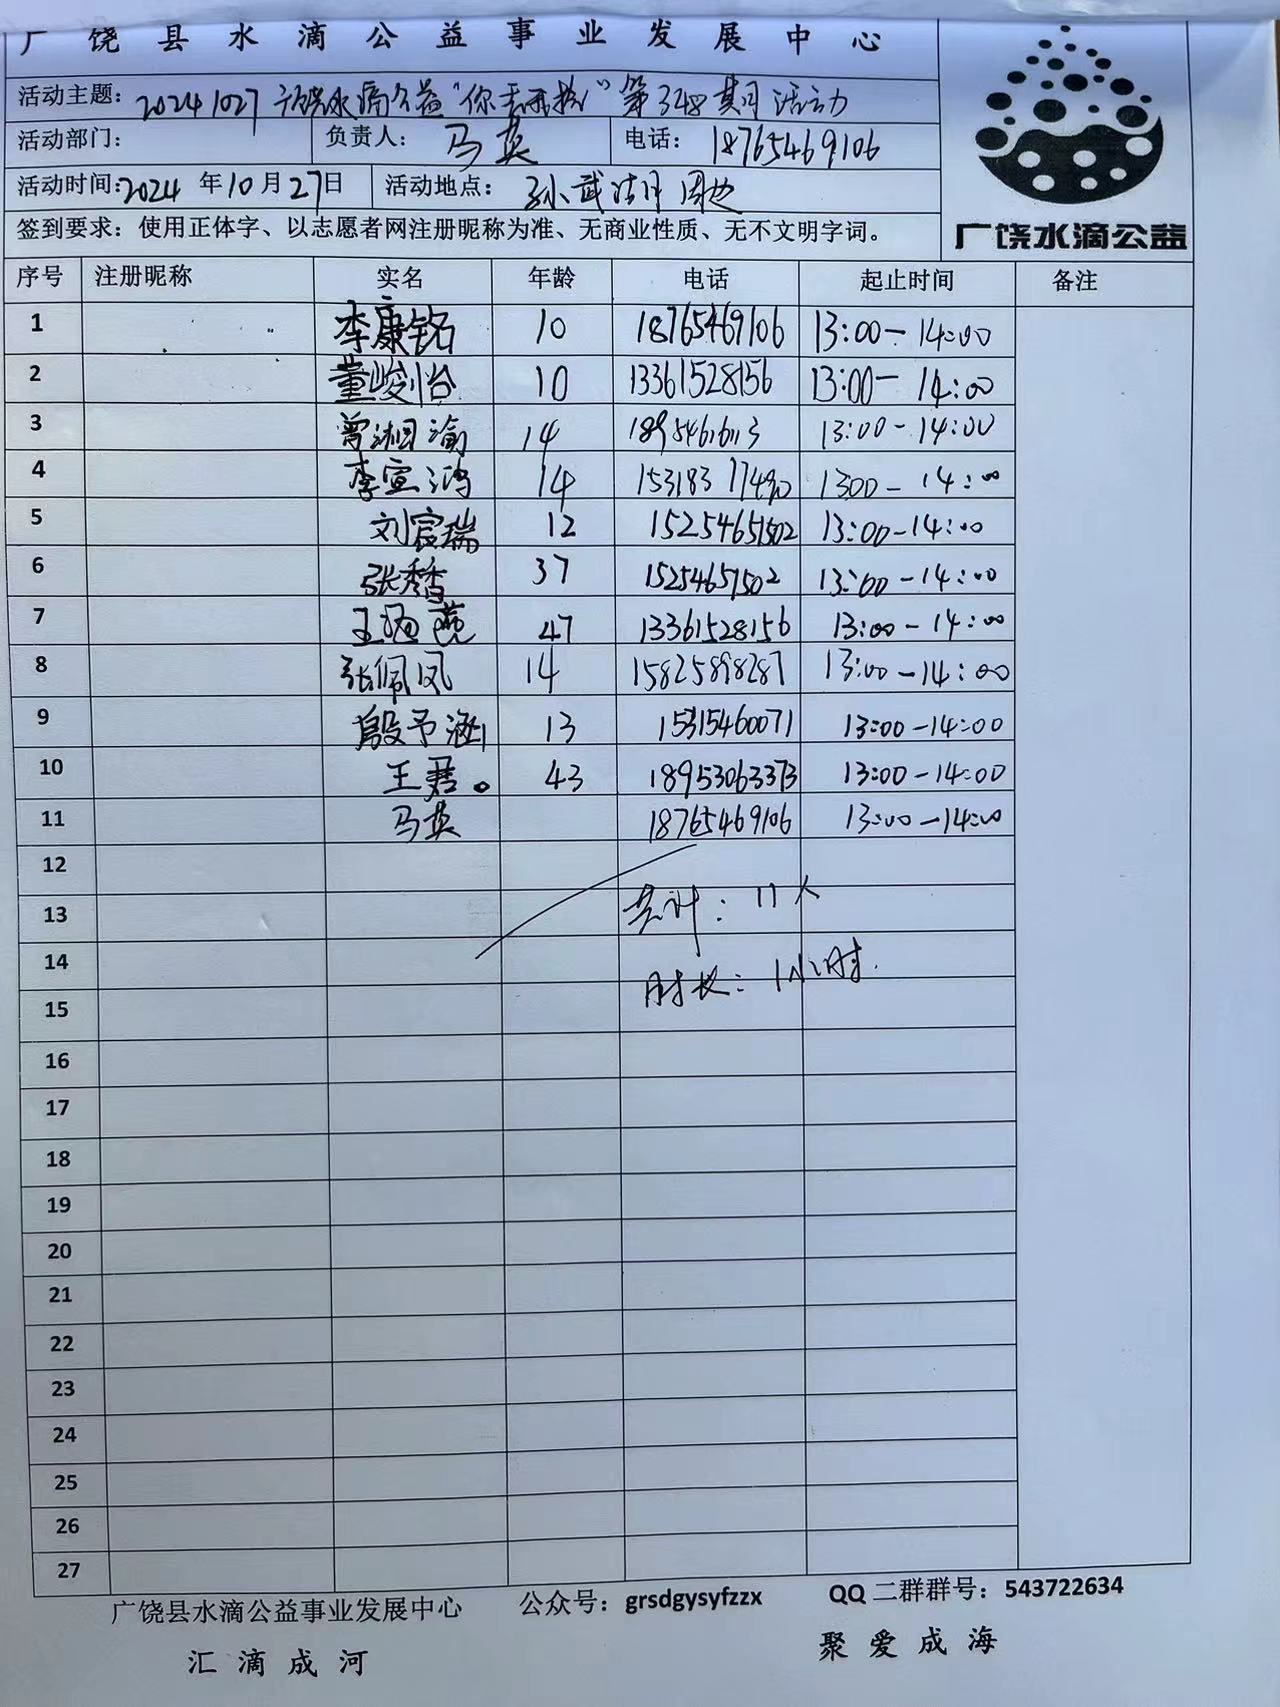 广饶县水滴公益事业发展中心
活动主题：20241027广饶水滴公益"你丢我捡"第348期活动
活动部门： 负责人：马英 电话：18765469106
活动时间：2024年10月27日 活动地点：孙武 周边
签到要求：使用正体字、以志愿者网注册昵称为准、无商业性质、无不文明字词。
广饶水滴公益
序号 注册昵称 实名 年龄 电话 起止时间 备注
1 李康铭 10 18765469106 13:00-14:00
2 董峻怡 10 13361528156 13:00-14:00
3 曾湘渝 14 18954616113 13:00-14:00
4 李宣鸿 14 1300-14:00
5 刘宸瑞 12 15254651502 13:00-14:00
6 张秀香 37 15254651502 13:00-14:00
7 王 47 13361528156 13:00-14:00
8 张佩凤 14 15825898287 13:00-14:00
9 殷予涵 13 15315460071 13:00-14:00
10 王君。 43 18953063373 13:00-14:00
11 马英 18765469106 13:00-14:00
12
13 共计：11人
14
时长：1小时.
15
16
17
18
19
20
21
22
23
24
25
26
27
广饶县水滴公益事业发展中心 公众号：grsdgysyfzzx QQ二群群号：543722634
汇滴成河 聚爱成海